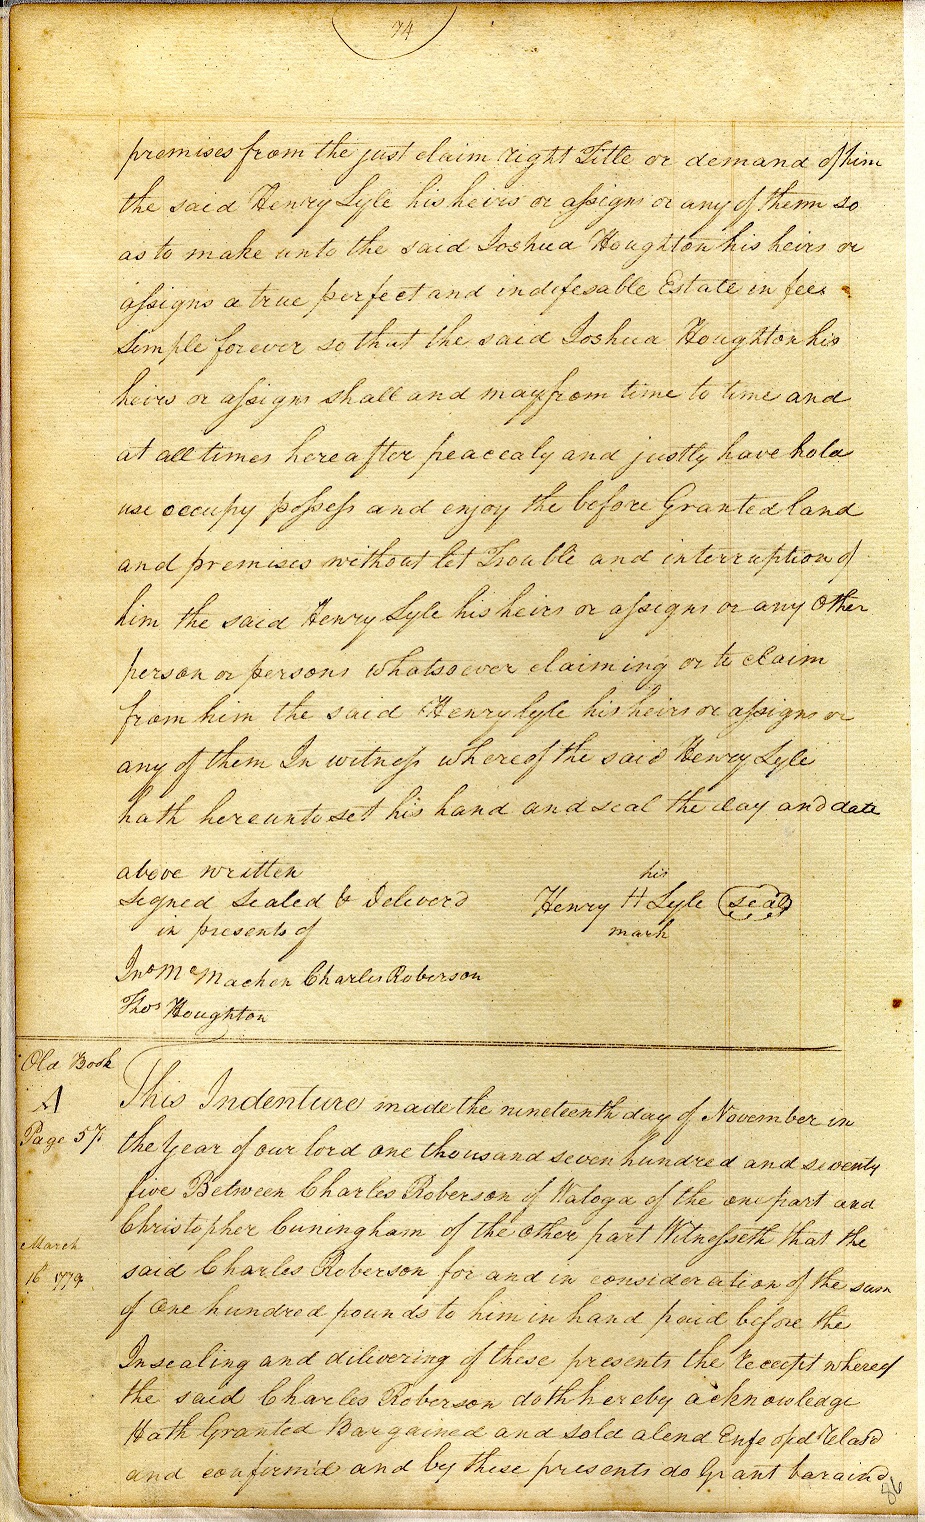 74
premises from the just claim right Title or demand of him
the said Henry Lyle his heirs or assigns or any of them so
as to make unto the said Joshua Houghton his heirs or
assigns a true perfect and indifesable Estate in fee
Simple forever so that the said Joshua Houghton his
heirs or assigns shall and may from time to time and
at all times hereafter peacealy and justly have hold
use occupy possess and enjoy the before Granted land
and premises without let Trouble and interruption of
him the said Henry Lyle his heirs or assigns or any Other
person or persons whatsoever claiming or to claim
from him the said Henry Lyle his heirs or assigns or
any of them In witness whereof the said Henry Lyle
hath hereunto set his hand and seal the day and date
above written
his
signed sealed & Deliverd Henry H Lyle seal
in presents of mark
Jno McMachen Charles Roberson
Thos Houghton
Old Book
A
Page 57
This Indenture made the nineteenth day of November in
the year of our lord one thousand seven hundred and seventy
five Between Charles Roberson of Watoga of the one part and
Christopher Cuningham of the other part Witnesseth that the
March
16 1779
said Charles Roberson for and in consideration of the sum
of One hundred pounds to him in hand paid before the
Insealing and dilivering of these presents the receipt whereof
the said Charles Roberson doth hereby acknowledge
Hath Granted Bargained and sold alend Enfeofd Relasd
and confirmd and by these presents do Grant baraind
86